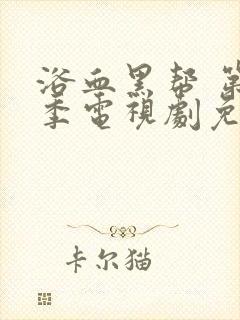 浴血黑帮 第
季電視劇免
卡尔猫